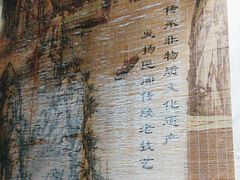 传承非物质文化遗产
发扬民间传统老技艺